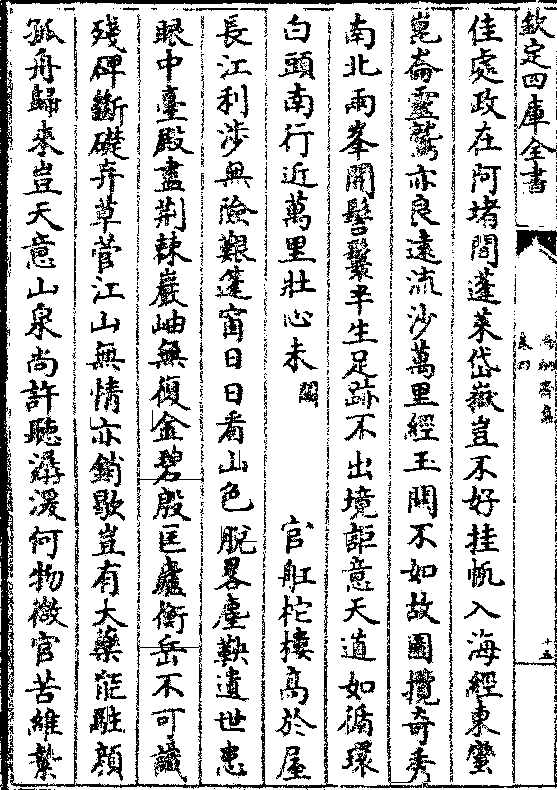 欽定四庫全書
佳處政在阿堵閣蓬萊岱嶽豈不好挂帆入海經東蠻
崑崙靈鷲亦良遠流沙萬里經玉關不如故園攬奇秀
南北兩峯開髻鬟半生足跡不出境詎意天道如循環
白頭南行近萬里壯心未闕官舡柁樓高於屋
長江利涉無險艱篷窗日日看山色脫畧塵鞅遺世患
眼中臺殿盡荆棘巖岫無復金碧殷匡廬衡岳不可識
殘碑斷礎弃草菅江山無情亦銷歇豈有大藥能駐顔
孤舟歸來豈天意山泉尚許聽潺湲何物微官苦維縶